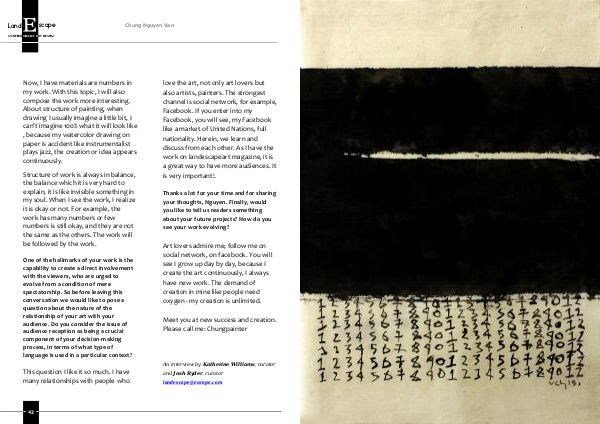 Land E scape
CONTEMPORARY ART REVIEW
Chung Nguyen Van
Now, I have materials are numbers in
my work. With this topic, I will also
compose the work more interesting.
About structure of painting, when
drawing I usually imagine a little bit, I
can't imagine 100% what it will look like
, because my watercolor drawing on
paper is accident like instrumentalist
plays jazz, the creation or idea appears
continuously.
Structure of work is always in balance,
the balance which it is very hard to
explain, it is like invisible something in
my soul. When I see the work, I realize
it is okay or not. For example, the
work has many numbers or few
numbers is still okay, and they are not
the same as the others. The work will
be followed by the work.
One of the hallmarks of your work is the
capability to create a direct involvement
with the viewers, who are urged to
evolve from a condition of mere
spectatorship. So before leaving this
conversation we would like to pose a
question about the nature of the
relationship of your art with your
audience. Do you consider the issue of
audience reception as being a crucial
component of your decision-making
process, in terms of what type of
language is used in a particular context?
This question I like it so much. I have
many relationships with people who
love the art, not only art lovers but
also artists, painters. The strongest
channel is social network, for example,
Facebook. If you enter into my
Facebook, you will see, my Facebook
like a market of United Nations, full
nationality. Herein, we learn and
discuss from each other. As I have the
work on landescapeart magazine, it is
a great way to have more audiences. It
is very important!.
Thanks a lot for your time and for sharing
your thoughts, Nguyen. Finally, would
you like to tell us readers something
about your future projects? How do you
see your work evolving?
Art lovers admire me; follow me on
social network, on facebook. You will
see I grow up day by day, because I
create the art continuously, I always
have new work. The demand of
creation in mine like people need
oxygen - my creation is unlimited.
Meet you at new success and creation.
Please call me: Chungpainter
An interview by Katherine Williams, curator
and Josh Ryder, curator
landescape@europe.com
42